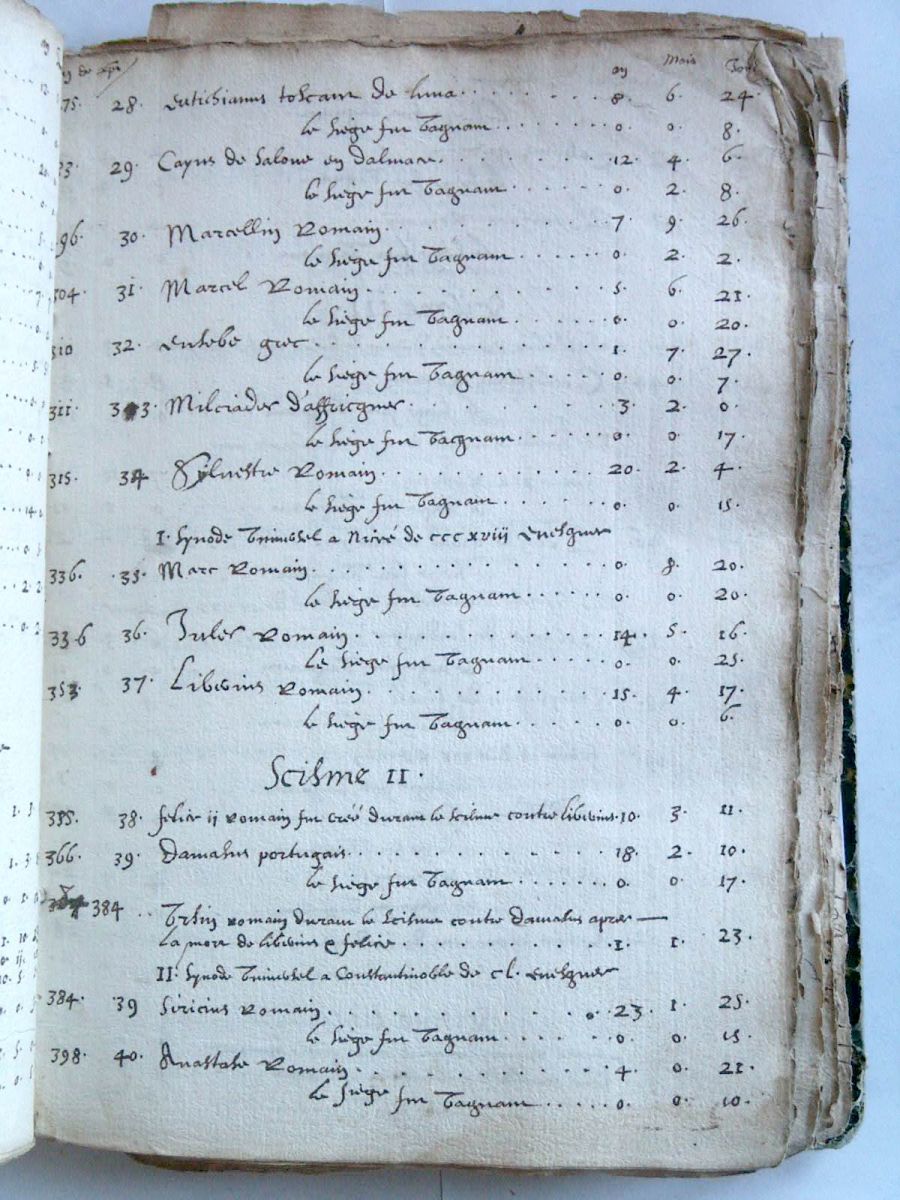 de xpi an Mois Jour
75. 28. eutichianus toscan de luna 8 6 24
le siege fut vaquant 0. 0. 8.
29. Cayus de Salone en dalmace. 12. 4. 6
le siege fut vaquant 0. 2. 8.
96. 30. Marcellin Romain 7 9. 26
le siege fut vaquant 0. 2. 2.
304. 31. Marcel Romain 5. 6. 21
le siege fut vaquant 0. 0. 20.
310 32. eusebe grec 1. 7. 27
le siege fut vaquant 0. 0. 7.
311 33 Milciades d'affricque 3 2. 0.
le siege fut vacquant 0. 0. 17.
315. 34 Sylvestre Romain 20. 2. 4.
le siege fut vaquant 0. 0. 15.
I. synode universel a Nicée de cccxviij evesques
336. 35. Marc Romain 0. 8. 20.
le siege fut vaquant 0. 0. 20.
336 36. Jules Romain 14. 5. 16
le siege fut vaquant 0. 0. 25.
353 37. Liberius Romain 15. 4. 17.
le siege fut vaquant 0. 0. 6.
Scisme II.
355. 38. felice ij Romain fut creé durant le scisme contre liberius. 10. 3. 11.
366. 39. damasus portugais 18. 2. 10.
le siege fut vaquant 0. 0. 17.
384 Ursin romain durant le scisme contre damasus apres
la mort de liberius & felice 1. 1. 23.
II. synode universel a Constantinoble de cl. evesques
384. 39 Siricius Romain 23. 1. 25
le siege fut vaquant 0. 0. 15
398. 40. Anastase Romain 4. 0. 21.
le siege fut vaquant 0. 0. 10.